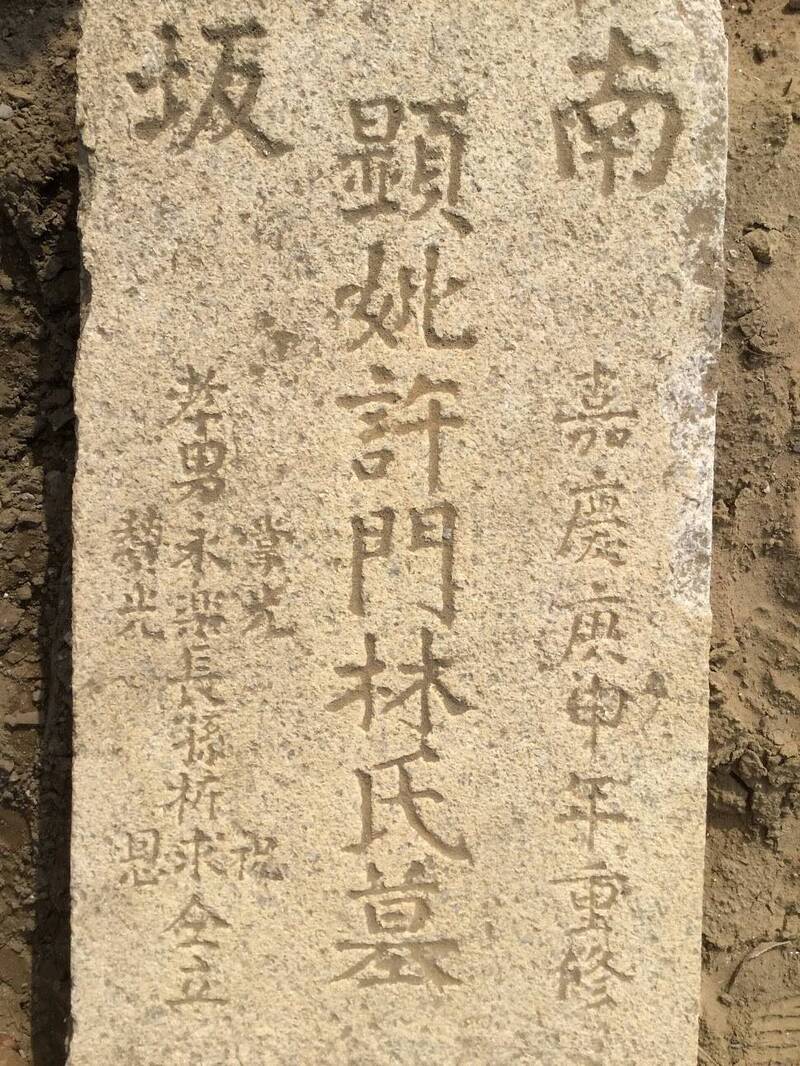 南坂
嘉慶庚申年重修
顯妣許門林氏墓
光 祝
孝男永樂長孫求仝立
光 恩